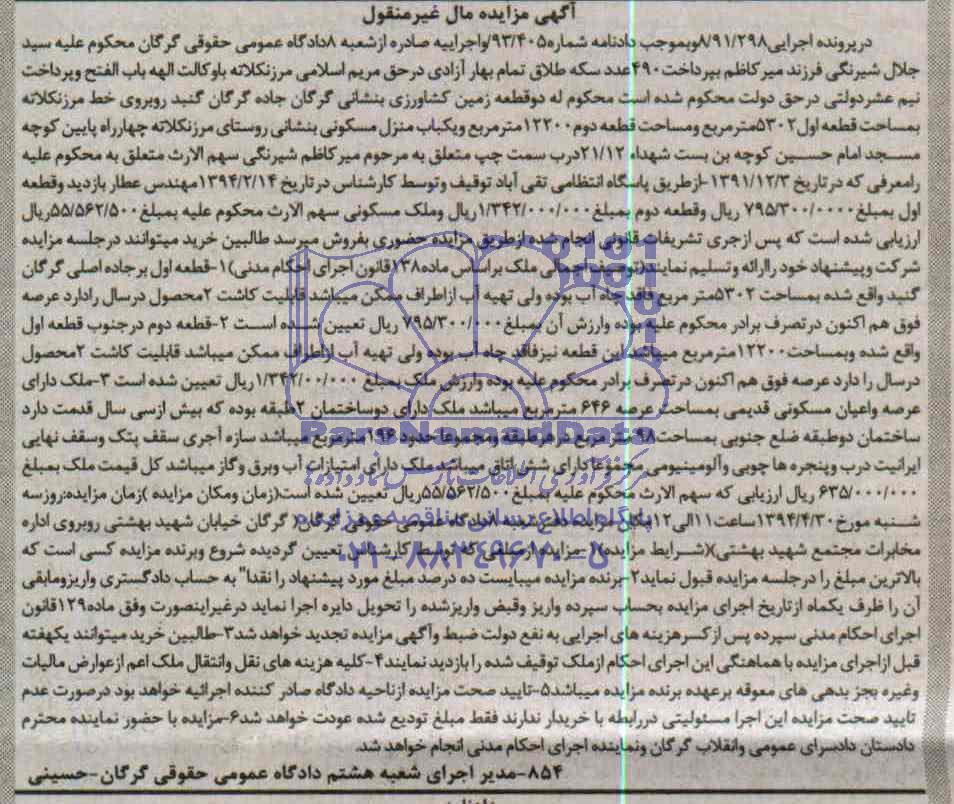 آگهی مزایده مال غیرمنقول
درپرونده اجرایی۸/۹۱/۲۹۸وبموجب دادنامه شماره۹۳/۴۰۵واجراییه صادره ازشعبه ۸دادگاه عمومی حقوقی گرگان محکوم علیه سید
جلال شیرنگی فرزند میرکاظم بپرداخت۴۹۰عدد سکه طلاق تمام بهار آزادی درحق مریم اسلامی مرزنکلاته باوکالت الهه باب الفتح وپرداخت
نیم عشردولتی درحق دولت محکوم شده است محکوم له دوقطعه زمین کشاورزی بنشانی گرگان جاده گرگان گنبد روبروی خط مرزنکلاته
بمساحت قطعه اول۵۳۰۲مترمربع ومساحت قطعه دوم۱۲۲۰۰مترمربع ویکباب منزل مسکونی بنشانی روستای مرزنکلاته چهارراه پایین کوچه
مسجد امام حسین کوچه بن بست شهداء ۲۱/۱۲درب سمت چپ متعلق به مرحوم میرکاظم شیرنگی سهم الارث متعلق به محکوم علیه
رامعرفی که درتاریخ ۱۳۹۱/۱۲/۳-ازطریق پاسگاه انتظامی تقی آباد توقیف وتوسط کارشناس درتاریخ ۱۳۹۴/۲/۱۴مهندس عطار بازدید وقطعه
اول بمبلغ۷۹۵/۳۰۰/۰۰۰۰ ریال وقطعه دوم بمبلغ۱/۳۴۲/۰۰۰/۰۰۰ریال وملک مسکونی سهم الارث محکوم علیه بمبلغ۵۵/۵۶۲/۵۰۰ریال
ارزیابی شده است که پس ازجری تشریفات قانونی انجام شده ازطریق مزایده حضوری بفروش میرسد طالبین خرید میتوانند درجلسه مزایده
شرکت وپیشنهاد خود راارائه وتسلیم نمایند(توصیف اجمالی ملک براساس ماده۱۳۸قانون اجرای احکام مدنی)۱-قطعه اول برجاده اصلی گرگان
گنبد واقع شده بمساحت ۵۳۰۲متر مربع فاقد چاه آب بوده ولی تهیه آب ازاطراف ممکن میباشد قابلیت کاشت ۲محصول درسال رادارد عرصه
فوق هم اکنون درتصرف برادر محکوم علیه بوده وارزش آن بمبلغ۷۹۵/۳۰۰/۰۰۰ ریال تعیین شده است ۲-قطعه دوم درجنوب قطعه اول
واقع شده وبمساحت۱۲۲۰۰مترمربع میباشد این قطعه نیزفاقد چاه آب بوده ولی تهیه آب ازاطراف ممکن میباشد قابلیت کاشت ۲محصول
درسال را دارد عرصه فوق هم اکنون درتصرف برادر محکوم علیه بوده وارزش ملک بمبلغ ۱/۳۴۲/۰۰/۰۰۰ریال تعیین شده است ۳-ملک دارای
عرصه واعیان مسکونی قدیمی بمساحت عرصه ۶۴۶ مترمربع میباشد ملک دارای دوساختمان ۲طبقه بوده که بیش ازسی سال قدمت دارد
ساختمان دوطبقه ضلع جنوبی بمساحت۹۸متر مربع درهرطبقه ومجموعا حدود ۱۹۶مترمربع میباشد سازه آجری سقف پتک وسقف نهایی
ایرانیت درب وپنجره ها چوبی وآلومینیومی مجموعا دارای شش اتاق میباشد ملک دارای امتیازات آب وبرق وگاز میباشد کل قیمت ملک بمبلغ
۶۳۵/۰۰۰/۰۰۰ ریال ارزیابی که سهم الارث محکوم علیه بمبلغ ۵۵/۵۶۲/۵۰۰ریال تعیین شده است(زمان ومکان مزایده )زمان مزایده:روزسه
شنبه مورخ۱۳۹۴/۴/۳۰ساعت۱۱الی۱۲مکان مزایده دفترشعبه ۸دادگاه عمومی حقوقی گرگان( گرگان خیابان شهید بهشتی روبروی اداره
مخابرات مجتمع شهید بهشتی)(شرایط مزایده)۱-مزایده ازمبلغی که توسط کارشناس تعیین گردیده شروع وبرنده مزایده کسی است که
بالاترین مبلغ را درجلسه مزایده قبول نماید۲-برنده مزایده میبایست ده درصد مبلغ مورد پیشنهاد را نقدا" به حساب دادگستری واریزومابقی
آن را ظرف یکماه ازتاریخ اجرای مزایده بحساب سپرده واریز وقبض واریزشده را تحویل دایره اجرا نماید درغیراینصورت وفق ماده۱۲۹قانون
اجرای احکام مدنی سپرده پس ازکسرهزینه های اجرایی به نفع دولت ضبط وآگهی مزایده تجدید خواهد شد۳-طالبین خرید میتوانند یکهفته
قبل ازاجرای مزایده با هماهنگی این اجرای احکام ازملک توقیف شده را بازدید نمایند۴-کلیه هزینه های نقل وانتقال ملک اعم ازعوارض مالیات
وغیره بجز بدهی های معوقه برعهده برنده مزایده میباشد۵-تایید صحت مزایده ازناحیه دادگاه صادر کننده اجرائیه خواهد بود درصورت عدم
تایید صحت مزایده این اجرا مسئولیتی دررابطه با خریدار ندارند فقط مبلغ تودیع شده عودت خواهد شد۶-مزایده با حضور نماینده محترم
دادستان دادسرای عمومی وانقلاب گرگان ونماینده اجرای احکام مدنی انجام خواهد شد.
۸۵۴-مدیر اجرای شعبه هشتم دادگاه عمومی حقوقی گرگان-حسینی
ParsNamadData
پایگاه اطلاع رسانی مناقصه و مزایده
۰۲۱-۸۸۳۴۹۶۷۰-۵